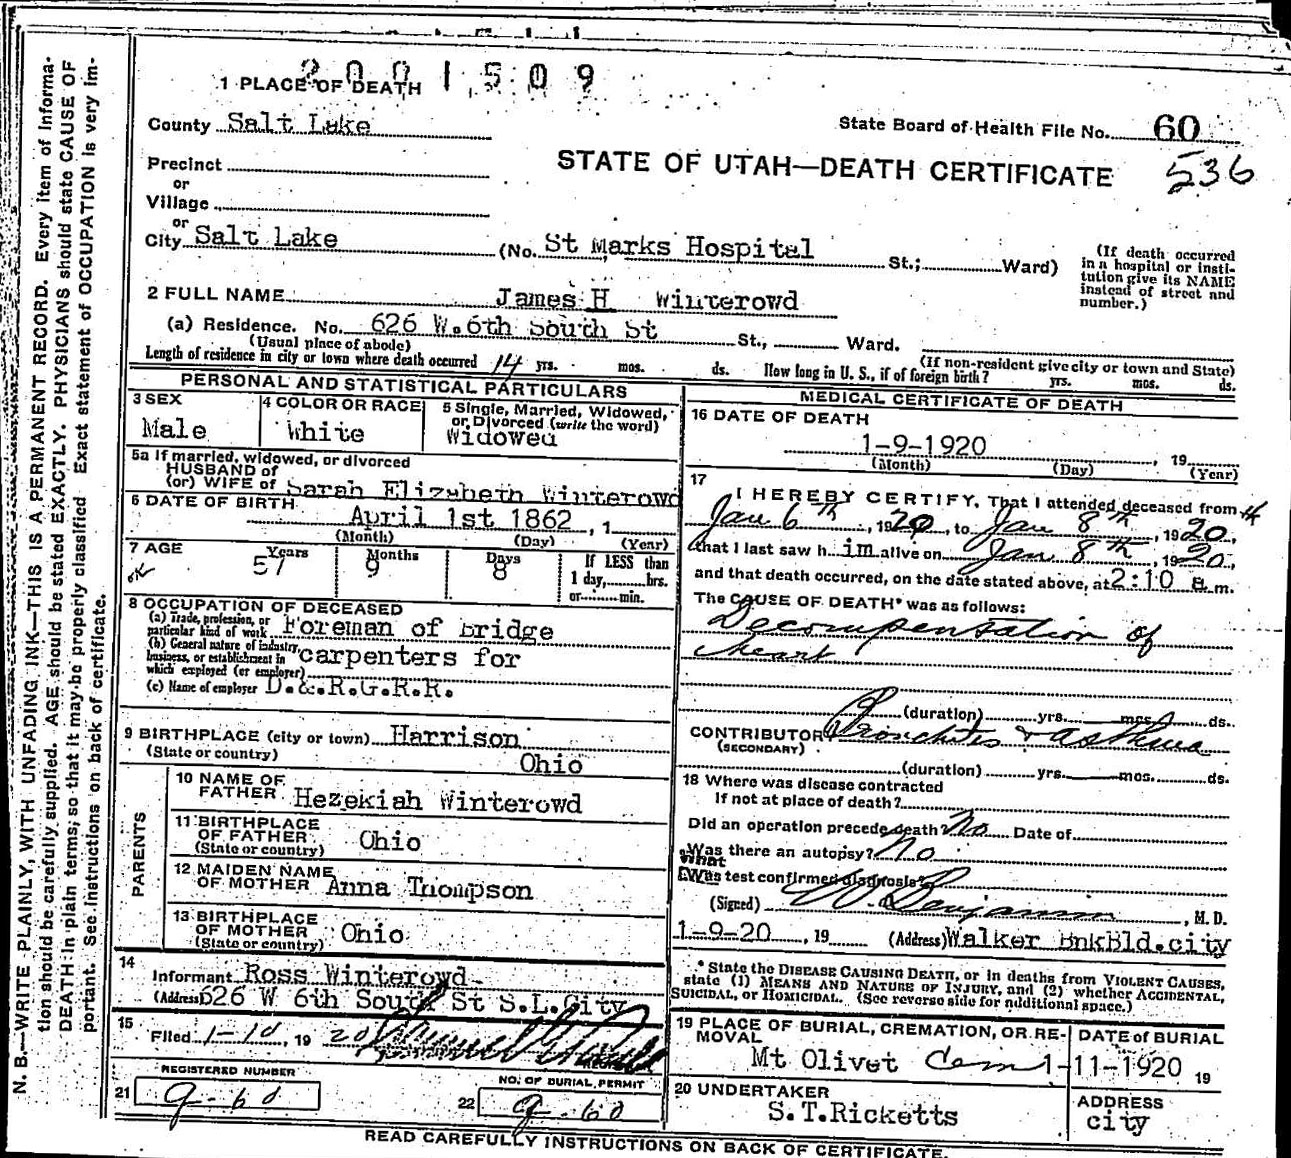 2001509
1 PLACE OF DEATH
County Salt Lake
State Board of Health File No. 60
STATE OF UTAH—DEATH CERTIFICATE 536
Precinct
or
Village
or
City Salt Lake (No. St Marks Hospital St.; Ward)
(If death occurred
in a hospital or insti-
tution give its NAME
instead of street and
number.)
2 FULL NAME James H Winterowd
(a) Residence. No. 626 W. 6th South St St., Ward.
(Usual place of abode) (If non-resident give city or town and State)
Length of residence in city or town where death occurred 14 yrs. mos. ds. How long in U. S., if of foreign birth? yrs. mos. ds.
PERSONAL AND STATISTICAL PARTICULARS
3 SEX
Male
4 COLOR OR RACE
White
5 Single, Married, Widowed,
or Divorced (write the word)
Widowed
5a If married, widowed, or divorced
HUSBAND of
(or) WIFE of Sarah Elizabeth Winterowd
6 DATE OF BIRTH
April 1st 1862, 1
(Month) (Day) (Year)
7 AGE
OK
Years Months Days
57 9 8
If LESS than
1 day, hrs.
or min.
8 OCCUPATION OF DECEASED
(a) Trade, profession, or
particular kind of work Foreman of Bridge
(b) General nature of industry,
business, or establishment in
which employed (or employer) carpenters for
(c) Name of employer D.&.R.G.R.R.
9 BIRTHPLACE (city or town) Harrison
(State or country) Ohio
PARENTS
10 NAME OF
FATHER Hezekiah Winterowd
11 BIRTHPLACE
OF FATHER Ohio
(State or country)
12 MAIDEN NAME
OF MOTHER Anna Thompson
13 BIRTHPLACE
OF MOTHER Ohio
(State or country)
14
Informant Ross Winterowd
(Address) 626 W 6th South St S.L.City
15
Filed 1-10, 19 20
REGISTERED NUMBER
21 9-60
NO. OF BURIAL PERMIT
22 9-60
MEDICAL CERTIFICATE OF DEATH
16 DATE OF DEATH
1-9-1920, 19
(Month) (Day) (Year)
17
I HEREBY CERTIFY, That I attended deceased from
Jan 6th, 1920, to Jan 8th, 1920,
that I last saw h im alive on Jan 8th, 1920,
and that death occurred, on the date stated above, at 2:10 a m.
The CAUSE OF DEATH* was as follows:
Decompensation of
heart
(duration) yrs. mos. ds.
CONTRIBUTORY Bronchitis & asthma
(SECONDARY)
(duration) yrs. mos. ds.
18 Where was disease contracted
If not at place of death?
Did an operation precede death? No Date of
Was there an autopsy? No
What
Was test confirmed diagnosis?
(Signed) W. Benjamin, M. D.
1-9-20, 19 (Address) Walker BnkBld.city
* State the DISEASE CAUSING DEATH, or in deaths from VIOLENT CAUSES,
state (1) MEANS AND NATURE OF INJURY, and (2) whether ACCIDENTAL,
SUICIDAL, or HOMICIDAL. (See reverse side for additional space.)
19 PLACE OF BURIAL, CREMATION, OR RE-
MOVAL
Mt Olivet Cem
DATE of BURIAL
1-11-1920 19
20 UNDERTAKER
S.T.Ricketts
ADDRESS
city
READ CAREFULLY INSTRUCTIONS ON BACK OF CERTIFICATE.
N. B.—WRITE PLAINLY, WITH UNFADING INK—THIS IS A PERMANENT RECORD. Every item of informa-
tion should be carefully supplied. AGE should be stated EXACTLY. PHYSICIANS should state CAUSE OF
DEATH in plain terms, so that it may be properly classified. Exact statement of OCCUPATION is very im-
portant. See instructions on back of certificate.